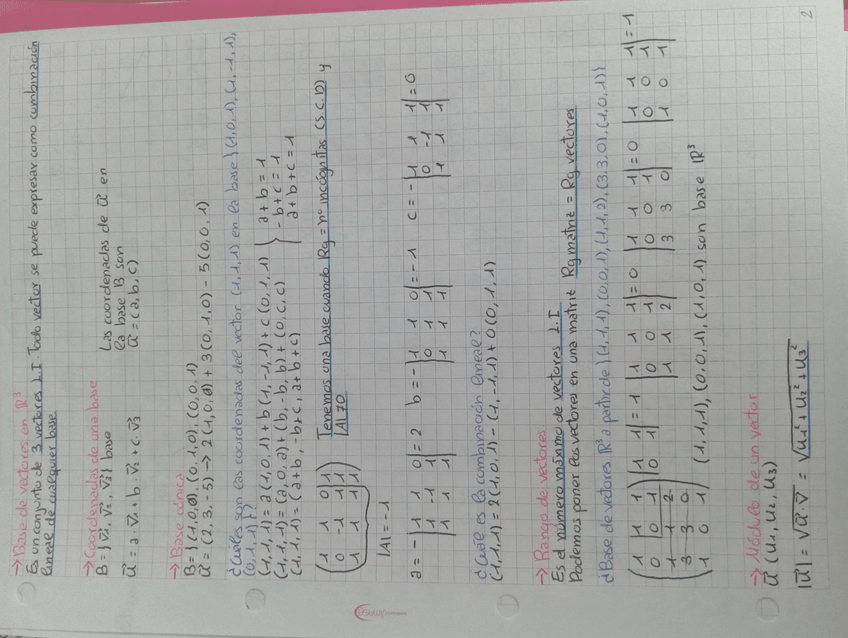 →Base de vectores en ℝ³
Es un conjunto de 3 vectores L.I. Todo vector se puede expresar como combinación
lineal de cualquier base
→Coordenadas de una base
B={v₁, v₂, v₃} base
u = a·v₁+b·v₂+c·v₃
Las coordenadas de u en
la base B son
u=(a,b,c)
→Base cónica
B={(1,0,0),(0,1,0),(0,0,1)
u=(2,3,-5)→2(1,0,0)+3(0,1,0)-5(0,0,1)
¿Cuáles son las coordenadas del vector (1,1,1) en la base {(1,0,1),(1,-1,1),
(0,1,1)}?
(1,1,1)=a(1,0,1)+b(1,-1,1)+c(0,1,1) } a+b=1
(1,1,1)=(a,0,a)+(b,-b,b)+(0,c,c) } -b+c=1
(1,1,1)=(a+b,-b+c,a+b+c) } a+b+c=1
(1 1 0|1)
(0 -1 1|1)
(1 1 1|1)
|A|=-1
Tenemos una base cuando Rg=nº incógnitas (S.C.D) y
|A|≠0
a=-|1 1 0|=2 b=-|1 1 0|=-1 c=-|1 1 1|=0
|1 -1 1| |0 1 1| |0 -1 1|
|1 1 1| |1 1 1| |1 1 1|
¿Cuál es la combinación lineal?
(1,1,1)=2(1,0,1)-(1,-1,1)+0(0,1,1)
→Rango de vectores
Es el número máximo de vectores L.I
Podemos poner los vectores en una matriz Rg matriz = Rg vectores
¿Base de vectores ℝ³ a partir de {(1,1,1),(0,0,1),(1,1,2),(3,3,0),(1,0,1)}
(1 1 1) |1 1|=1 |1 1 1|=0 |1 1 1|=0 |1 1 1|=-1
(0 0 1) |0 1| |0 0 1| |0 0 1| |0 0 1|
(1 1 2) |1 1 2| |3 3 0| |1 0 1|
(3 3 0)
(1 0 1) (1,1,1),(0,0,1),(1,0,1) son base ℝ³
→Módulo de un vector
u (u₁,u₂,u₃)
|u|=√u·v = √u₁²+u₂²+u₃²
2